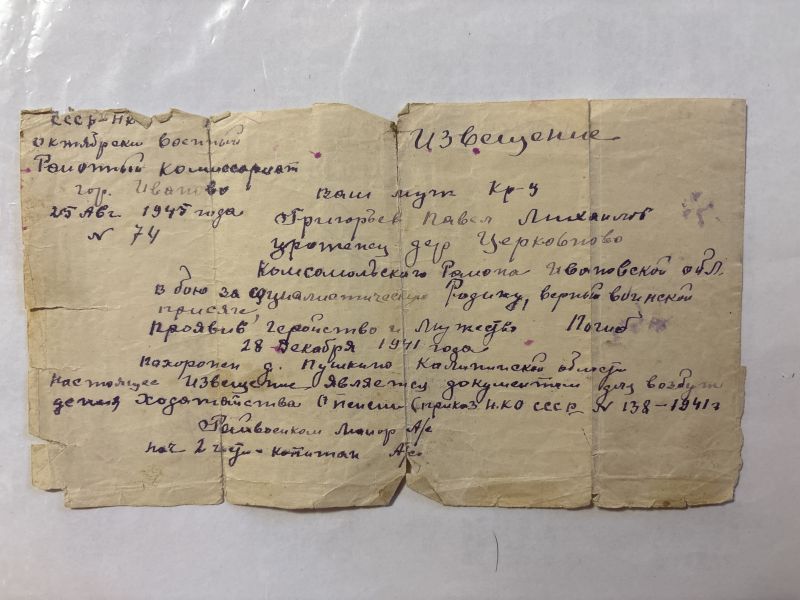 СССР-НК
Октябрски Военный
Районный Комиссариат
гор. Иваново
25 Авг 1945 года
N 74
Извещение
ваш муж Кр-ц
Григорьев Павел Михайлов
уроженец дер Церковново
Комсомольского Района Ивановской обл.
в бою за социалистическую Родину, верный воинской
присяге,
проявив геройство и мужество Погиб
28 Декабря 1941 года
похоронен д. Пушкино Калининской области
Настоящее Извещение является документом для возбуж
дения Ходатайства О пенсии (приказ Н.КО СССР N 138-1941г
Райвоенком Майор
нач 2 части - капитан